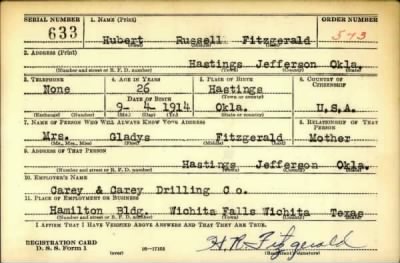 SERIAL NUMBER 1. NAME (Print) ORDER NUMBER
633 Hubert Russell Fitzgerald 573
(First) (Middle) (Last)
2. ADDRESS (Print)
Hastings Jefferson Okla.
(Number and street or R. F. D. number) (Town) (County) (State)
3. TELEPHONE 4. AGE IN YEARS 5. PLACE OF BIRTH 6. COUNTRY OF CITIZENSHIP
None 26 Hastings
DATE OF BIRTH (Town or county)
9- 4- 1914 Okla. U.S.A.
(Exchange) (Number) (Mo.) (Day) (Yr.) (State or country)
7. NAME OF PERSON WHO WILL ALWAYS KNOW YOUR ADDRESS 8. RELATIONSHIP OF THAT PERSON
Mrs. Gladys Fitzgerald Mother
(Mr., Mrs., Miss) (First) (Middle) (Last)
9. ADDRESS OF THAT PERSON
Hastings Jefferson Okla.
(Number and street or R. F. D. number) (Town) (County) (State)
10. EMPLOYER'S NAME
Carey & Carey Drilling Co.
11. PLACE OF EMPLOYMENT OR BUSINESS
Hamilton Bldg. Wichita Falls Wichita Texas
(Number and street or R. F. D. number) (Town) (County) (State)
I AFFIRM THAT I HAVE VERIFIED ABOVE ANSWERS AND THAT THEY ARE TRUE.
REGISTRATION CARD
D. S. S. Form 1 (over) H. R. Fitzgerald
(Registrant's signature)